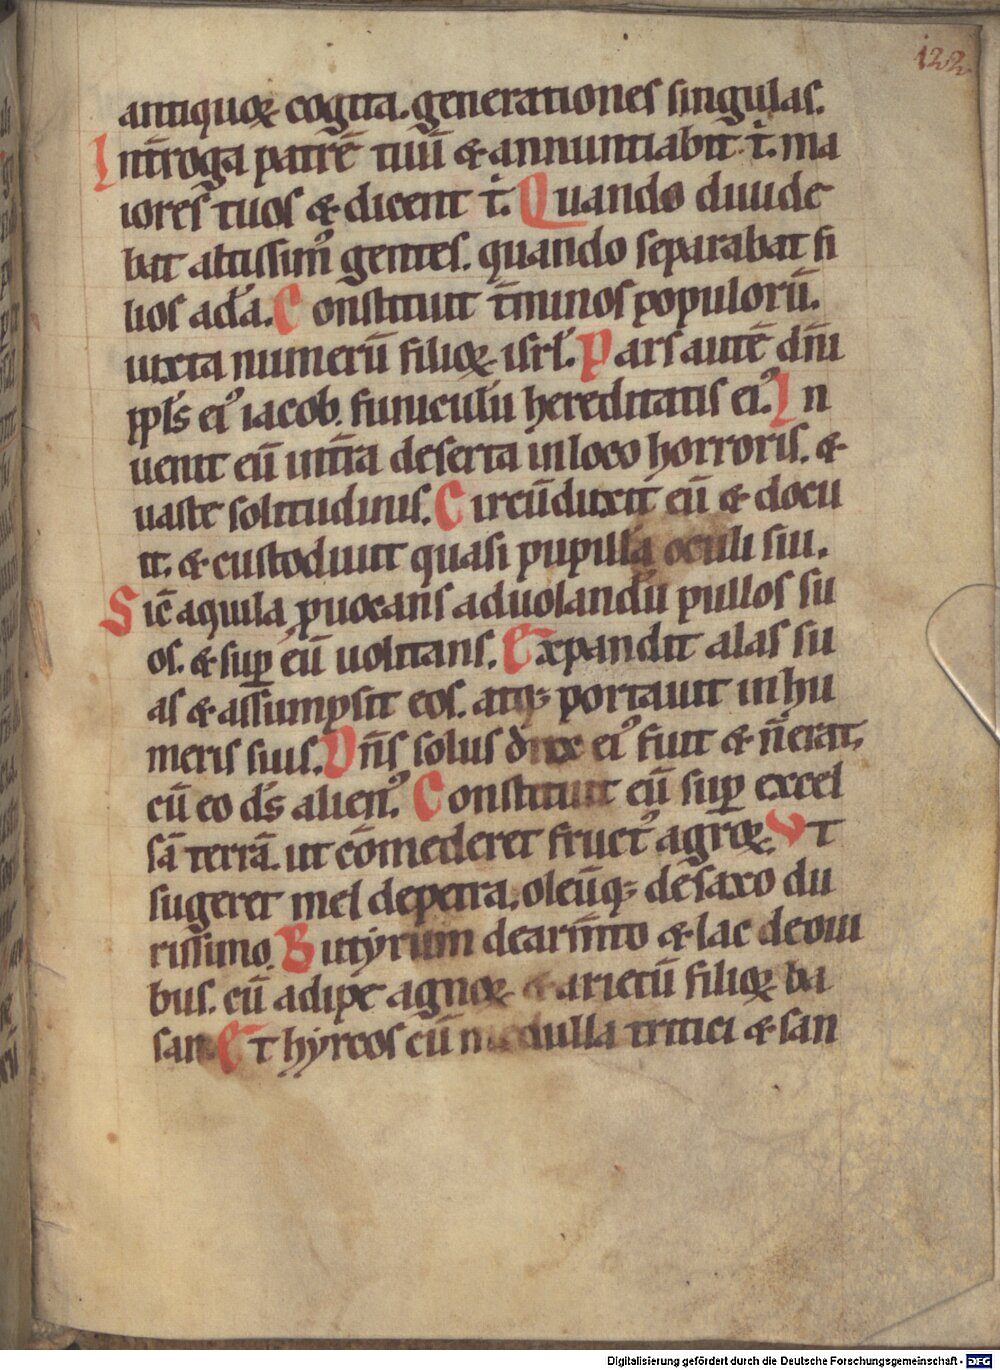 122
antiquoꝝ cogita. generationes singulas.
Int̄roga patrē tuū & annuntiabit t̄. ma
iores tuos & dicent t̄. Quando diuide
bat altissim᷒ gentes. quando separabat fi
lios adā. Constituit t̄minos populorū.
iuxta numerū filioꝝ isrł. Pars autē dn̄i
ppls̄ ei᷒ iacob. funiculu᷒ hereditatis ei᷒. In
uenit eū in tr̄a deserta in loco horroris. &
uaste solitudinis. Circūduxit eū & docu
it. & custodiuit quasi pupilla oculi sui.
Sic̄ aquila ꝓuocans aduolandū pullos su
os. & suꝑ eū uolitans. Expandit alas su
as & assumpsit eos. atq; portauit in hu
meris suis. Dn̄s solus dux ei᷒ fuit & n̄ erat
cū eo ds̄ alien᷒. Constituit eū suꝑ excel
sā terrā. ut cōmederet fruct᷒ agroꝝ. Ut
sugeret mel de petra. oleūq; de saxo du
rissimo. Butyrum de arm̄to & lac de oui
bus. cū adipe agnoꝝ & arietū filioꝝ ba
san. Et hyrcos cū medulla tritici & san
Digitalisierung gefördert durch die Deutsche Forschungsgemeinschaft - DFG